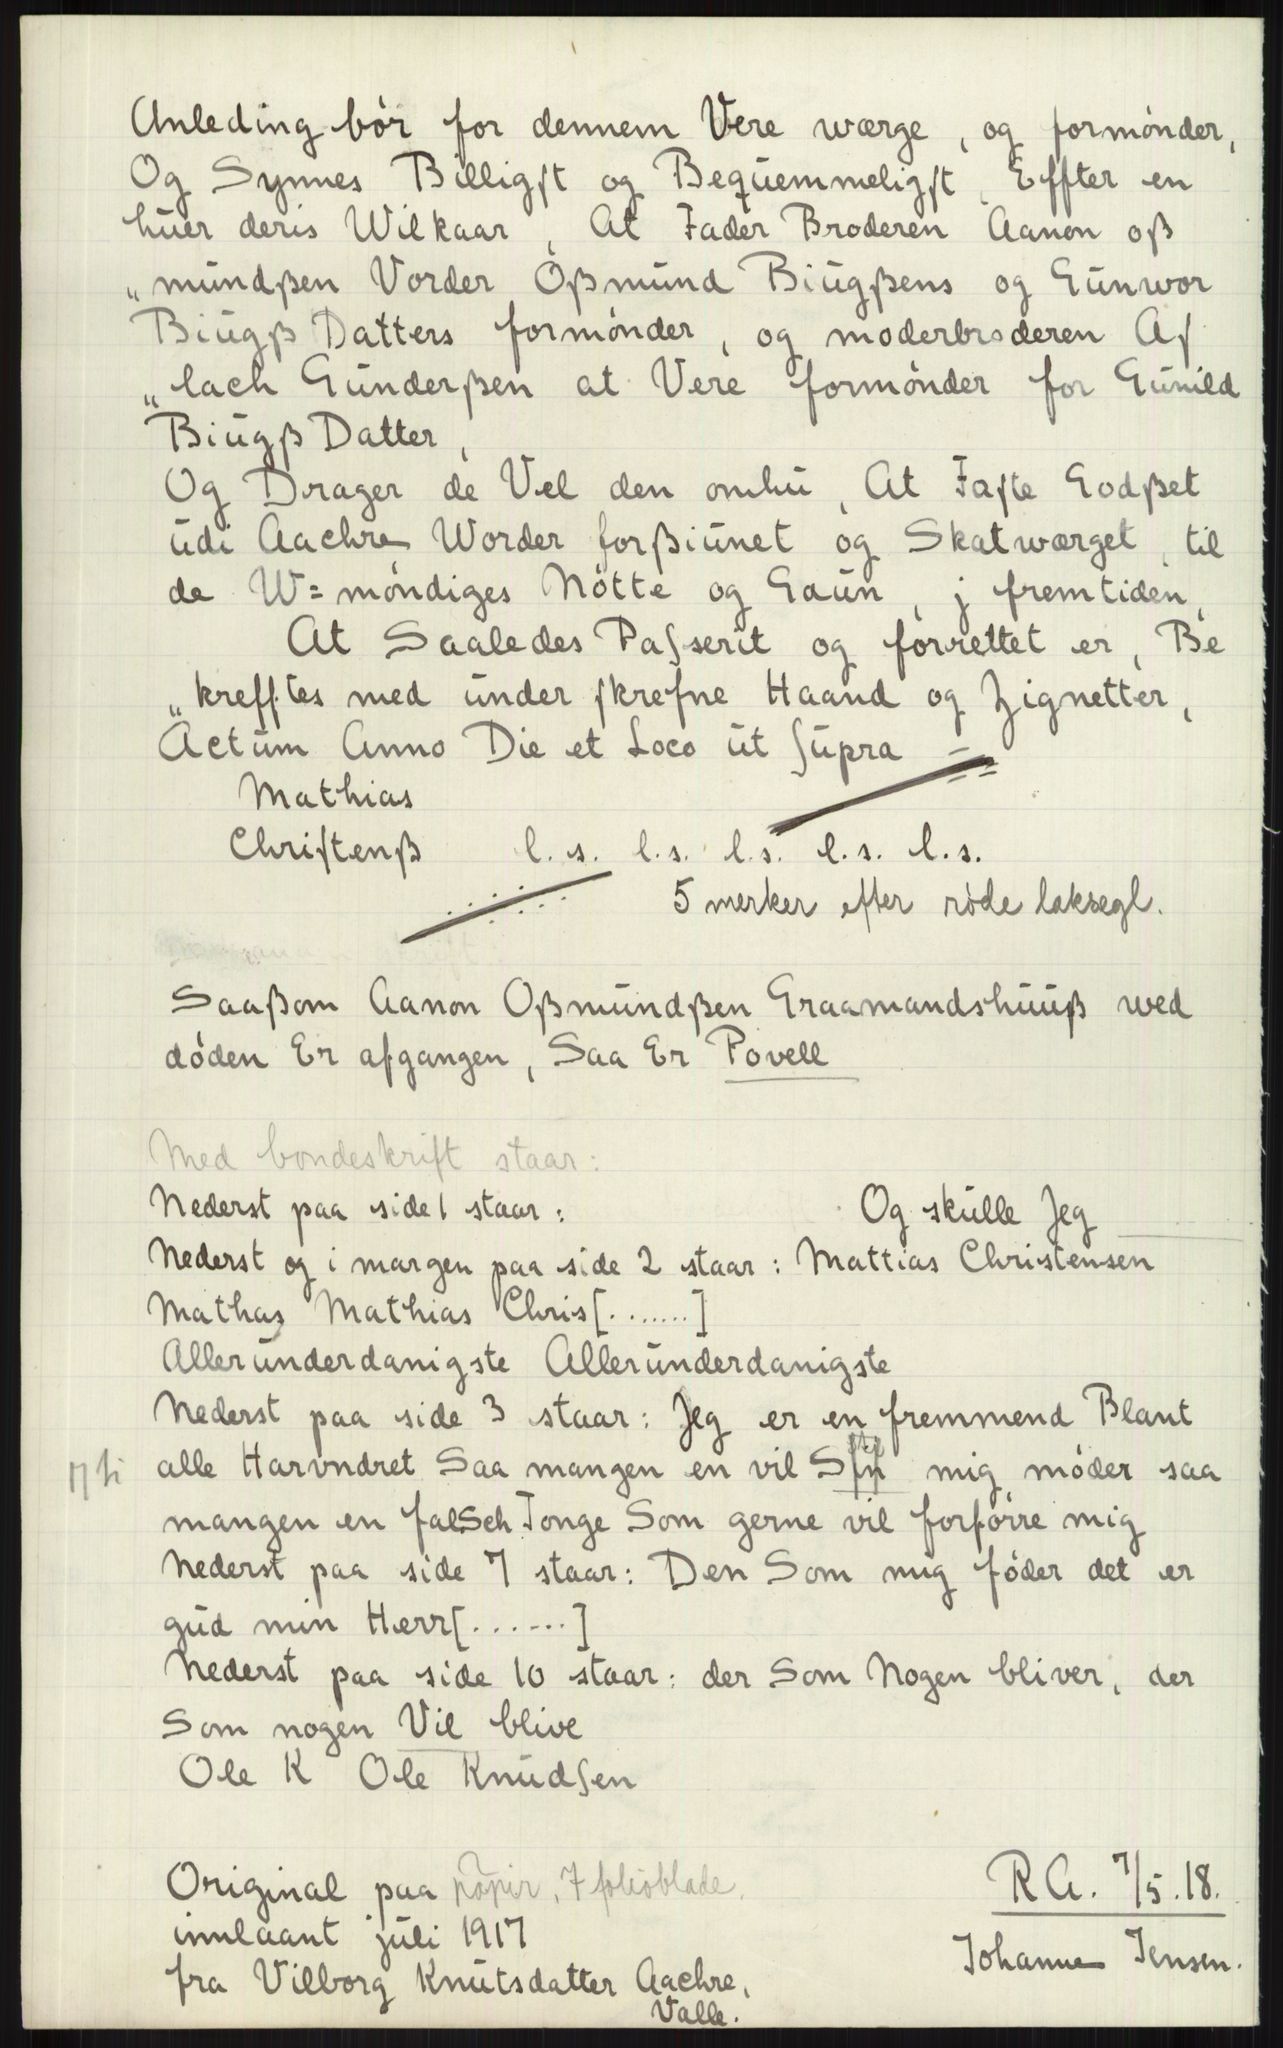 Anleding bör for dennem Vere wærge, og formönder,
Og Synnes Billigst og Bequemmeligst, Effter en
huer deris Wilkaar, At Fader Broderen Aanon oß
„mundßen Vorder Oßmund Biugßens og Gunwor
Biugß Datters formönder, og moderbroderen As
„lach Gunderßen at Vere formönder for Gunild
Biugß Datter,
Og Drager de Vel den omhu, At Faste Godßet
udi Aachre Worder forßiunet og Skatwærget, til
de W= möndiges Nötte og Gaun, j fremtiden,
At Saaledes Passerit og forrettet er, Be
„krefftes med under skrefne Haand og Zignetter,
Actum Anno Die et Loco ut supra
Mathias
Christenß l.s. l.s. l.s. l.s. l.s.
5 merker efter röde laksegl.
Saaßom Aanon Oßmundßen Graamandshuuß wed
döden Er afgangen, Saa Er Povell
Med bondeskrift staar:
Nederst paa side 1 staar: Og skulle Jeg
Nederst og i margen paa side 2 staar: Mattias Christensen
Mathas Mathias Chris[.......]
Allerunderdanigste Allerunderdanigste
Nederst paa side 3 staar: Jeg er en fremmend Blant
alle Harvndret Saa mangen en vil mig möder saa
mangen en falSch Tonge Som gerne vil forförre mig
Nederst paa side 7 staar: Den Som mig föder det er
gud min Herr[......]
Nederst paa side 10 staar: der Som Nogen bliver, der
Som nogen Vil blive
Ole K Ole Knudsen
Original paa papir, 7 folioblade.
innlaant juli 1917
fra Vilborg Knutsdatter Aachre,
Valle.
R A. 7/5.18.
Johanne Jensen.